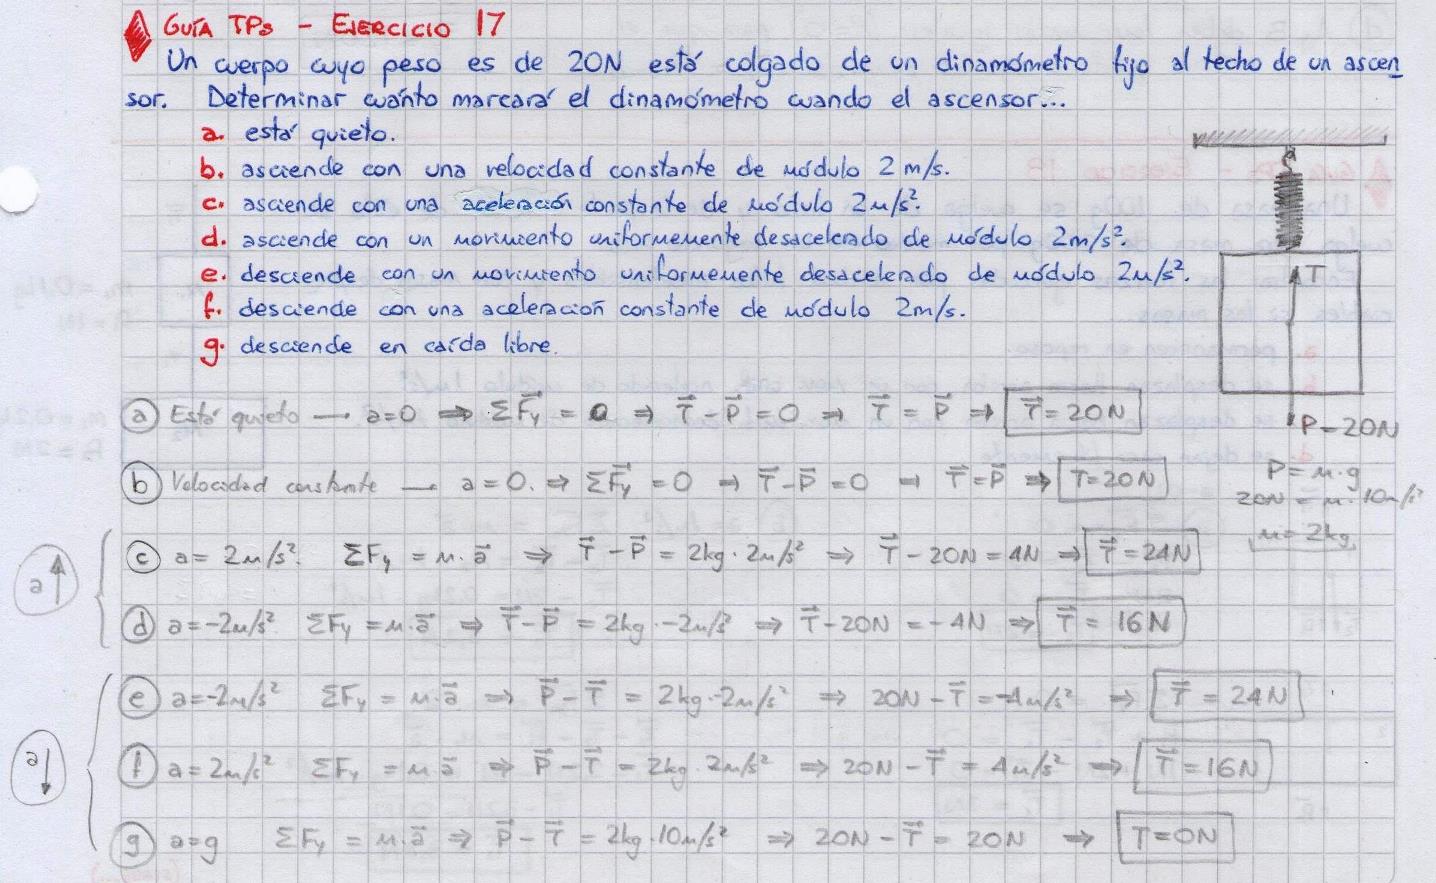 GUÍA TPs - EJERCICIO 17
Un cuerpo cuyo peso es de 20N está colgado de un dinamómetro fijo al techo de un ascen
sor. Determinar cuánto marcará el dinamómetro cuando el ascensor...
a. está quieto.
b. asciende con una velocidad constante de módulo 2 m/s.
c. asciende con una aceleración constante de módulo 2m/s².
d. asciende con un movimiento uniformemente desacelerado de módulo 2m/s².
e. desciende con un movimiento uniformemente desacelerado de módulo 2m/s².
f. desciende con una aceleración constante de módulo 2m/s.
g. desciende en caída libre.
T
P=20N
P=m·g
20N=m·10m/s²
m=2kg
a) Está quieto — a=0 ⇒ ΣF⃗y = 0 ⇒ T⃗-P⃗=0 ⇒ T⃗=P⃗ ⇒ T⃗=20N
b) Velocidad constante — a=0. ⇒ ΣF⃗y=0 ⇒ T⃗-P⃗=0 ⇒ T⃗=P⃗ ⇒ T=20N
a↑
c) a=2m/s². ΣFy = m·a⃗ ⇒ T⃗-P⃗ = 2kg·2m/s² ⇒ T⃗-20N=4N ⇒ T⃗=24N
d) a=-2m/s² ΣFy=m·a⃗ ⇒ T⃗-P⃗ = 2kg·-2m/s² ⇒ T⃗-20N=-4N ⇒ T⃗=16N
a↓
e) a=-2m/s² ΣFy = m·a⃗ ⇒ P⃗-T⃗ = 2kg·-2m/s² ⇒ 20N-T⃗=-4m/s² ⇒ T⃗=24N
f) a=2m/s² ΣFy = m·a⃗ ⇒ P⃗-T⃗ = 2kg·2m/s² ⇒ 20N-T⃗=4m/s² ⇒ T⃗=16N
g) a=g ΣFy = m·a⃗ ⇒ P⃗-T⃗ = 2kg·10m/s² ⇒ 20N-T⃗=20N ⇒ T=0N